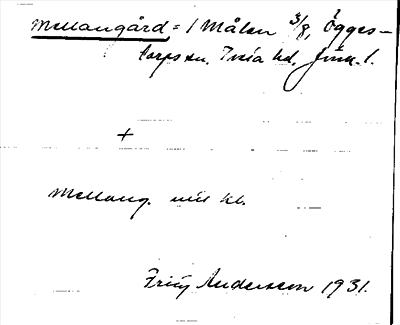 Mellangård = i Målen 3/8, Ögges-
torps sn. Tveta hd, Jönk. l.
+
Mellang.
Fritz Andersson 1931.